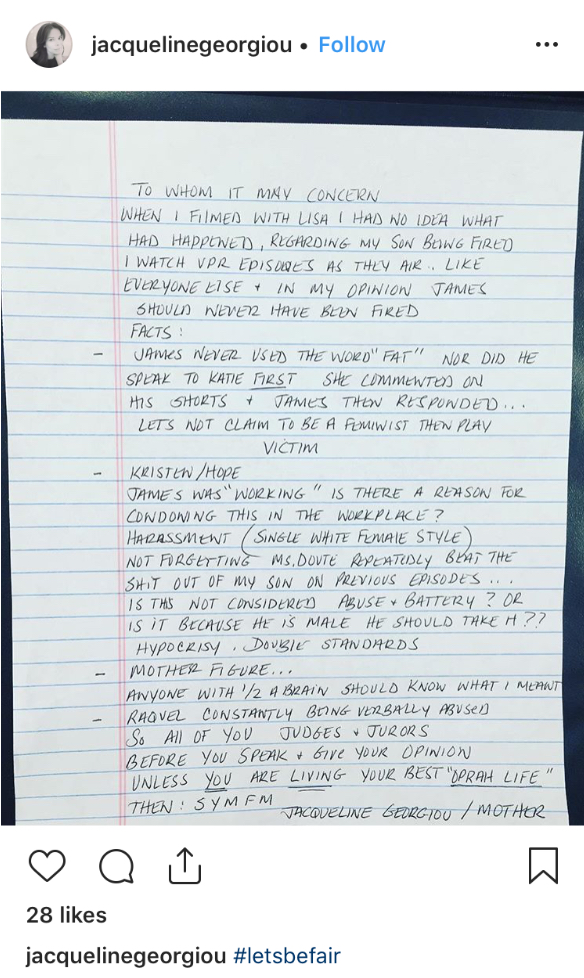 jacquelinegeorgiou • Follow
TO WHOM IT MAY CONCERN
WHEN I FILMED WITH LISA I HAD NO IDEA WHAT
HAD HAPPENED, REGARDING MY SON BEING FIRED
I WATCH VPR EPISODES AS THEY AIR.. LIKE
EVERYONE ELSE + IN MY OPINION JAMES
SHOULD NEVER HAVE BEEN FIRED
FACTS!
- JAMES NEVER USED THE WORD "FAT" NOR DID HE
SPEAK TO KATIE FIRST SHE COMMENTED ON
HIS SHORTS + JAMES THEN RESPONDED...
LETS NOT CLAIM TO BE A FEMINIST THEN PLAY
VICTIM
- KRISTEN/HOPE
JAMES WAS "WORKING" IS THERE A REASON FOR
CONDONING THIS IN THE WORKPLACE?
HARASSMENT (SINGLE WHITE FEMALE STYLE)
NOT FORGETTING MS.DOUTE REPEATEDLY BEAT THE
SHIT OUT OF MY SON ON PREVIOUS EPISODES...
IS THIS NOT CONSIDERED ABUSE + BATTERY? OR
IS IT BECAUSE HE IS MALE HE SHOULD TAKE IT??
HYPOCRISY. DOUBLE STANDARDS
- MOTHER FIGURE...
ANYONE WITH 1/2 A BRAIN SHOULD KNOW WHAT I MEANT
- RAQUEL CONSTANTLY BEING VERBALLY ABUSED
SO ALL OF YOU JUDGES + JURORS
BEFORE YOU SPEAK + GIVE YOUR OPINION
UNLESS YOU ARE LIVING YOUR BEST "OPRAH LIFE"
THEN! SYMFM JACQUELINE GEORGIOU / MOTHER
28 likes
jacquelinegeorgiou #letsbefair